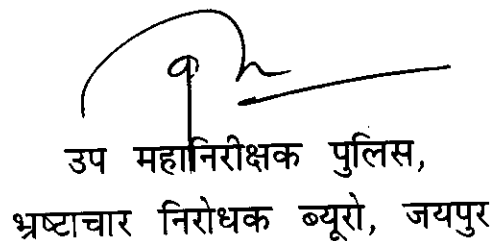 उप महानिरीक्षक पुलिस,
भ्रष्टाचार निरोधक ब्यूरो, जयपुर